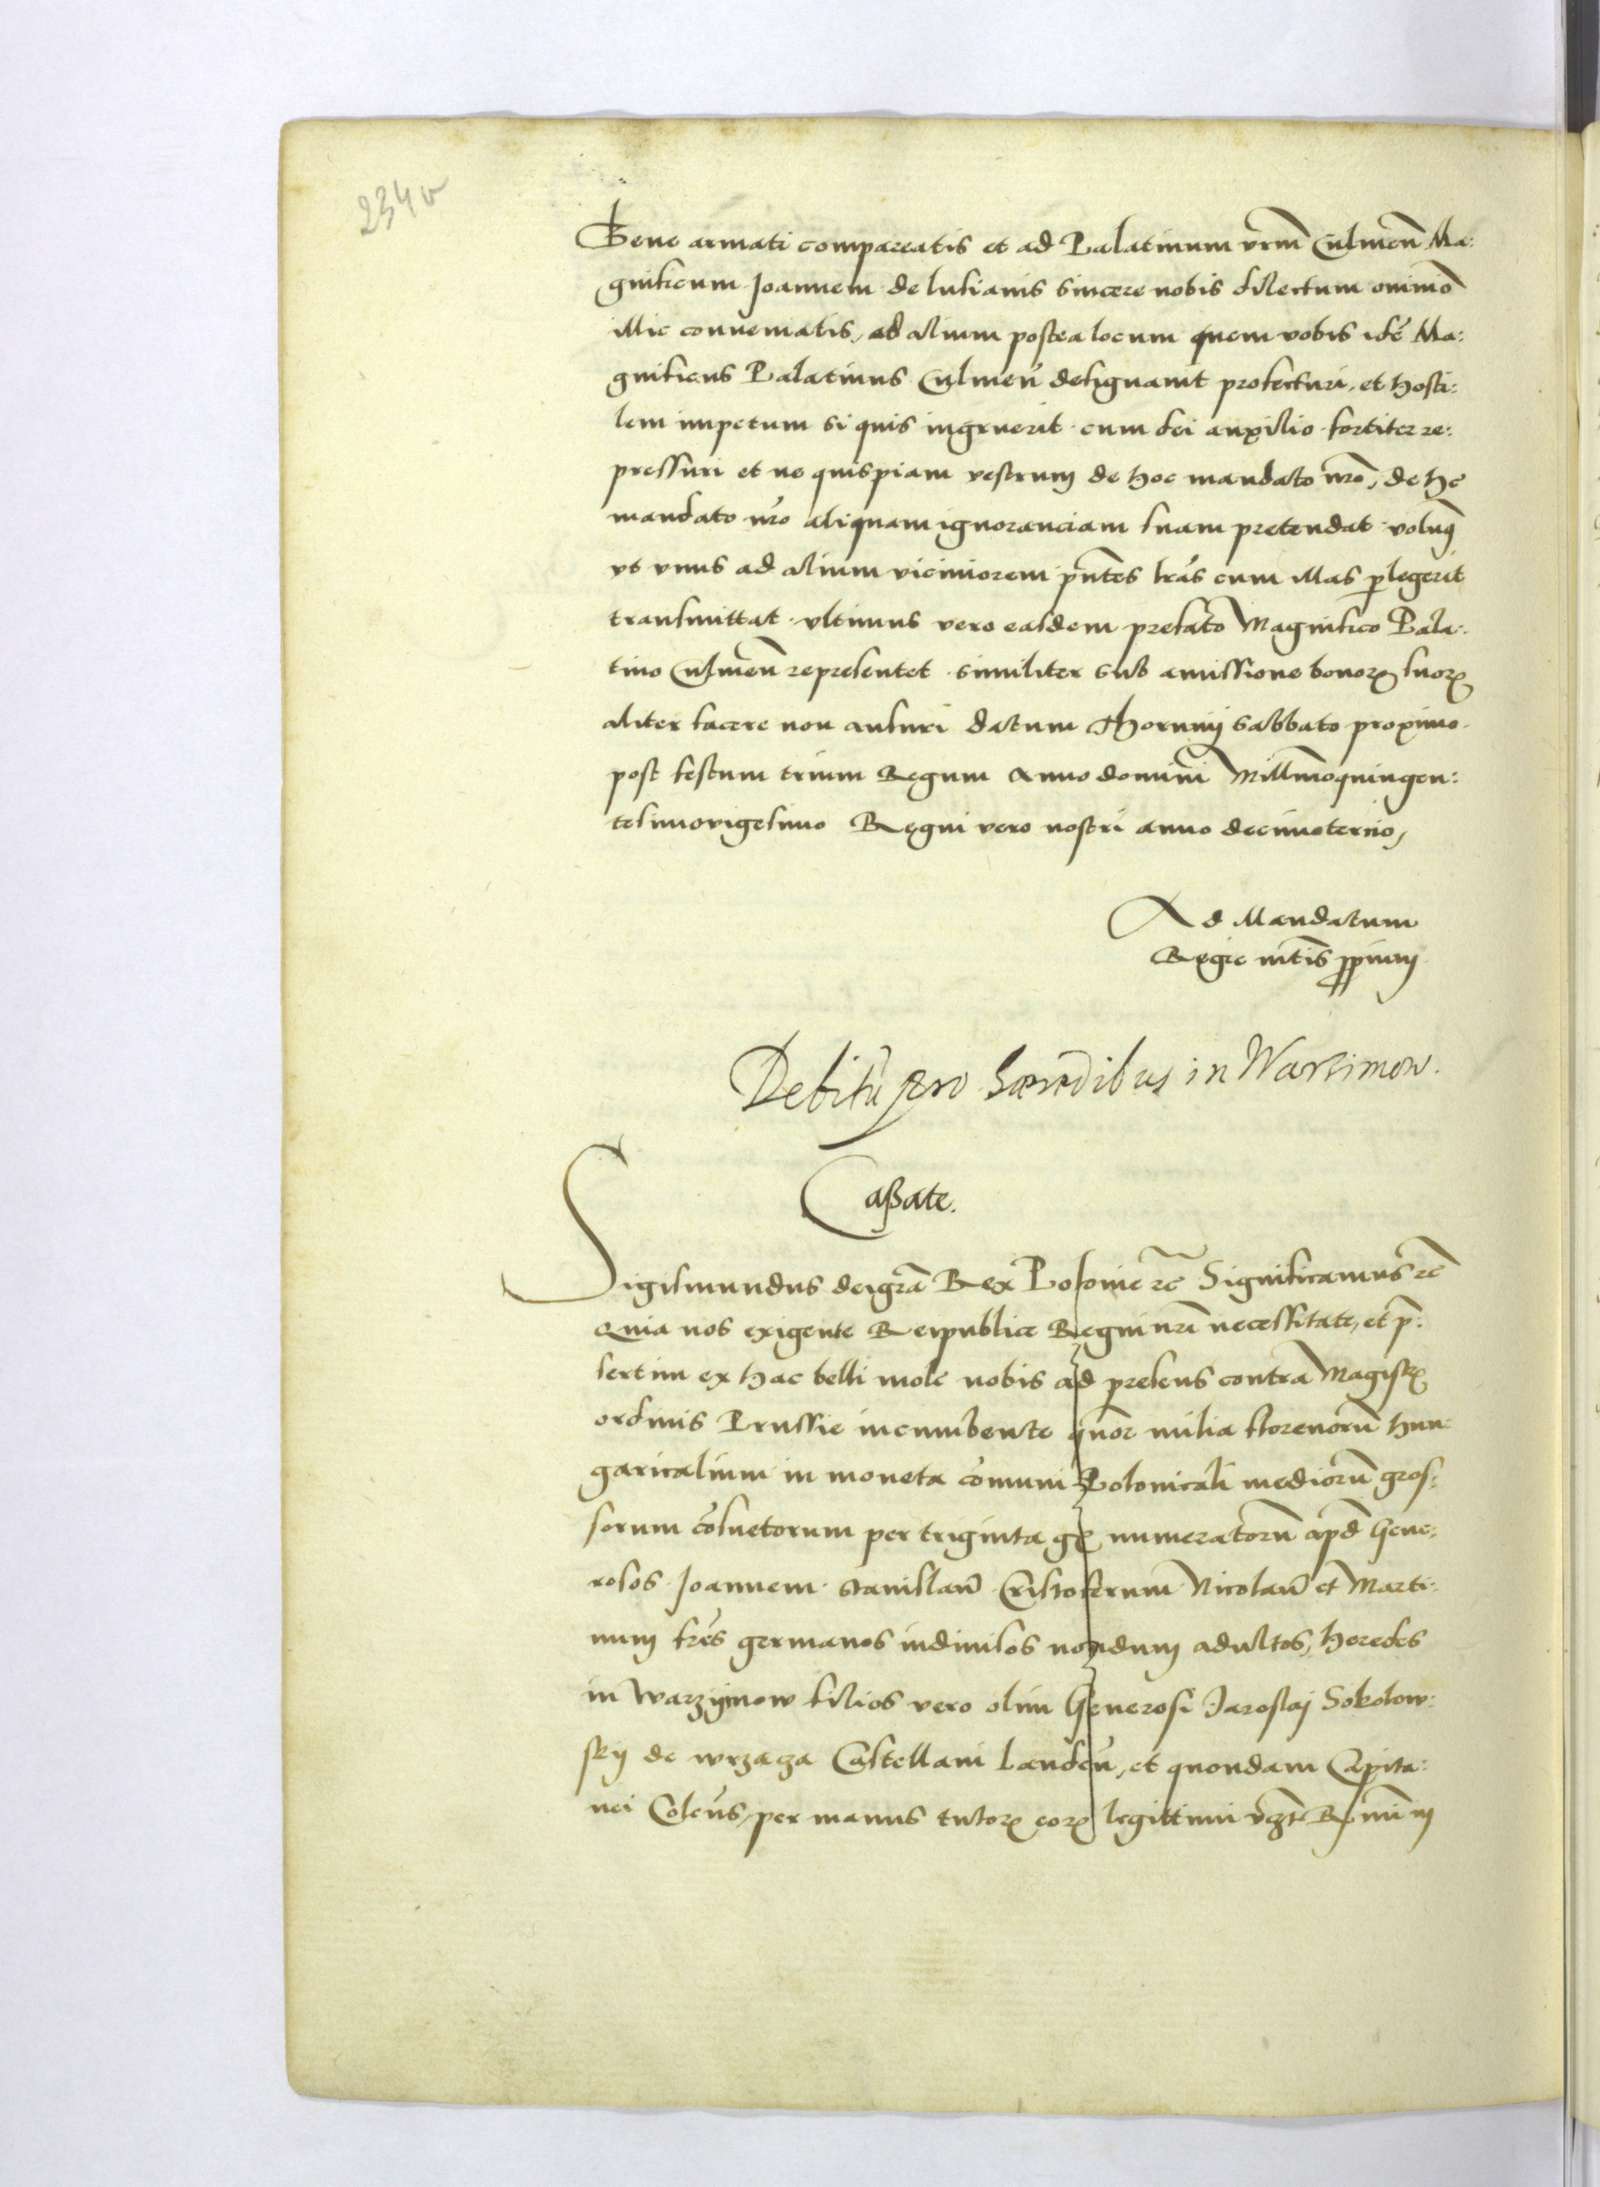 234v
Bene armati compareatis et ad Palatinum vrm̄ Culmeñ Ma:
gnificum Joannem de lusianis sincere nobis dilectum omnino
illic conueniatis, ad alium postea locum quem vobis idē Ma:
gnificus Palatinus Culmeñ designauit profecturi, et hosti:
lem impetum si quis ingruerit cum dei auxilio fortiter re:
pressuri et ne quispiam vestrum de hoc mandato nr̄o, de hc
mandato nr̄o aliquam ignoranciam suam pretendat volum9
vt vnus ad alium viciniorem pn̄tes lr̄as cum illas plegerit
transmittat vltimus vero easdem prefato Magnifico Pala:
tino Culmeñ representet similiter sub amissione bonoꝝ suoꝝ
aliter facere non ausuri datum Thorunij sabbato proximo
post festum trium Regum Anno domini Millmoquingen:
tesimovigesimo Regni vero nostri anno decimotercio,
Ad Mandatum
Regie mt̄is pprium
Debitū pro hæredibus in Warsimow.
Caßate.
Sigismundus dei gr̄a Rex Polonie rc̄ Significamus rc̄
Quia nos exigente Reipublice Regni nr̄i necessitate, et p̄:
sertim ex hac belli mole nobis ad presens contra Magistꝝ
ordinis Prussie incumbente quor̄ milia florenorū hun:
garicalium in moneta cōmuni Polonicali mediorū gros:
sorum cōsuetorum per triginta gꝝ numeratorū apd̄ Gene:
rosos Joannem Stanislaū Cristoferum Nicolaū et Marti:
num frēs germanos indiuisos nondum adultos, heredes
in Warzijmow filios vero olim Generosi Jaroslaj Sokolow:
skij de wrzacza Castellani Landeñ, et quondam Capita:
nei Coleñs, per manus tutoꝝ eoꝝ legittimi